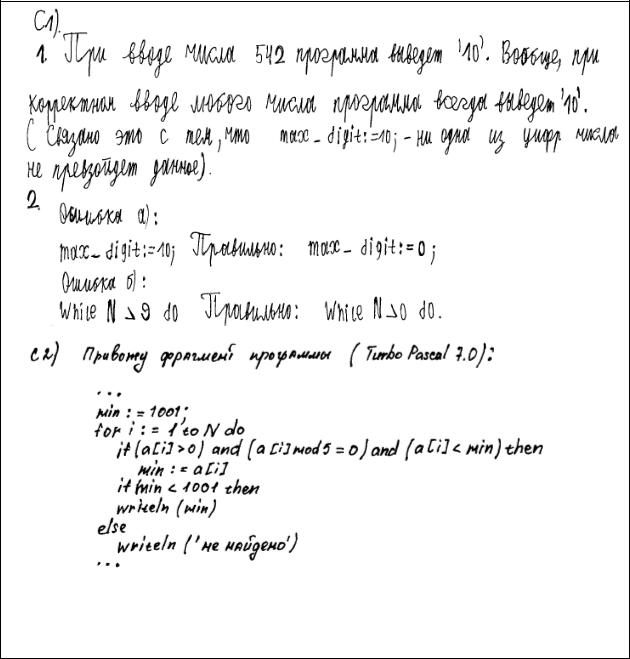 С1).
1. При вводе числа 542 программа выведет '10'. Вообще, при
корректном вводе любого числа программа всегда выведет '10'.
(Связано это с тем, что max_digit:=10; - ни одна из цифр числа
не превзойдет данное).
2.
Ошибка а):
max_digit:=10; Правильно: max_digit:=0;
Ошибка б):
While N>9 do Правильно: While N>0 do.
С2) Привожу фрагмент программы (Turbo Pascal 7.0):
...
min:=1001;
for i:=1 to N do
if (a[i]>0) and (a[i] mod 5=0) and (a[i]<min) then
min:=a[i]
if min<1001 then
writeln (min)
else
writeln ('не найдено')
...